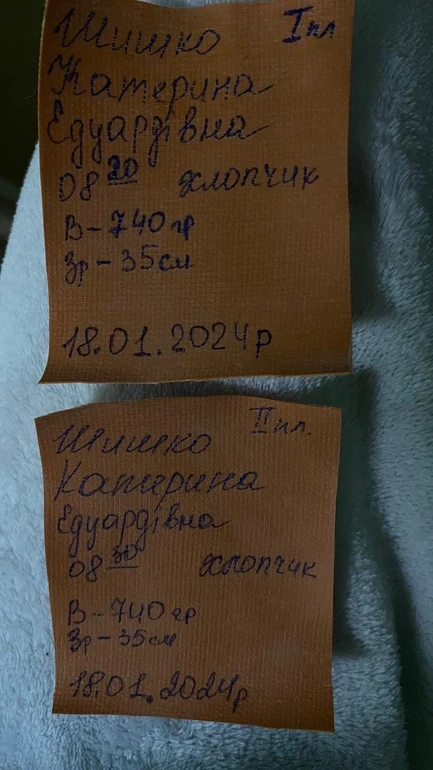 Шишко I пл
Катерина
Едуардівна
08 20 хлопчик
В - 740 гр
Зр - 35 см
18.01.2024р
Шишко II пл.
Катерина
Едуардівна
08 30 хлопчик
В - 740 гр
Зр - 35 см
18.01.2024р